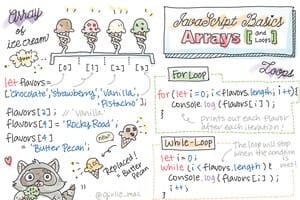 Array
of
ice cream
[0] [1] [2] [3]
let flavors =
['chocolate', 'strawberry', 'Vanilla',
'Pistachio'];
flavors[2]; // 'Vanilla'
flavors[4] = 'Rocky Road';
flavors[4]
= 'Butter Pecan';
Replaced!
Butter
Pecan
@girlie_mac
JavaScript Basics
Arrays [and Loops]
Loops
For Loop
for (let i=0; i<flavors.length; i++) {
Console.log (flavors[i]);
}
prints out each flavor
after each iteration!
While-Loop
let i=0;
while (i < flavors.length) {
Console.log (flavors[i]);
i++;
}
The loop will stop
when the condition
is met!